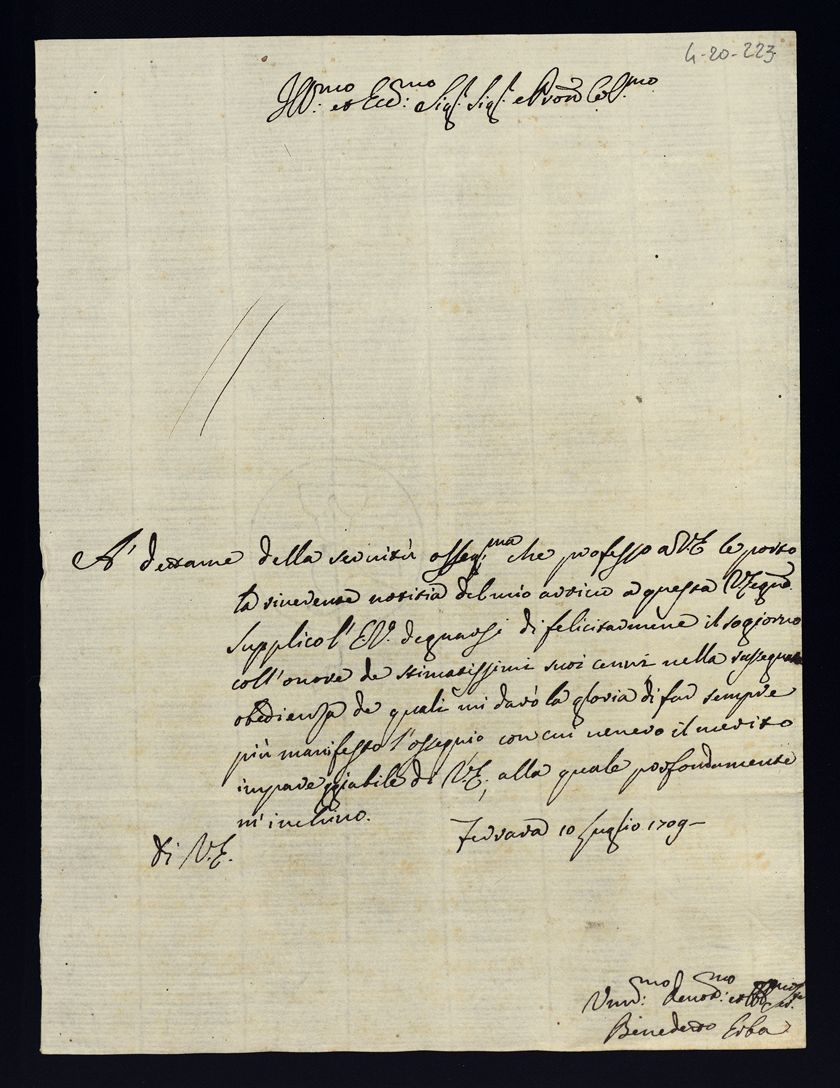 4-20-223
Ill.mo et Ecc.mo Sig.r Sig.r e Pron Col.mo
A' dettame della servitù osseq.ma che professo a V.E. le porto
la riverente notitia del mio arrivo a questa
Supplico l'E.V. degnarsi di felicitarmene il sogiorno
coll'onore de stimatissimi suoi cenni nella
obedienza de quali mi darò la gloria di far sempre
più manifesto l'ossequio con cui venero il merito
impareggiabile di V.E., alla quale profondamente
m'inchino.
Ferrara 10 Luglio 1709
Di V.E.
Um.mo Devot.mo et
Benedetto Erba